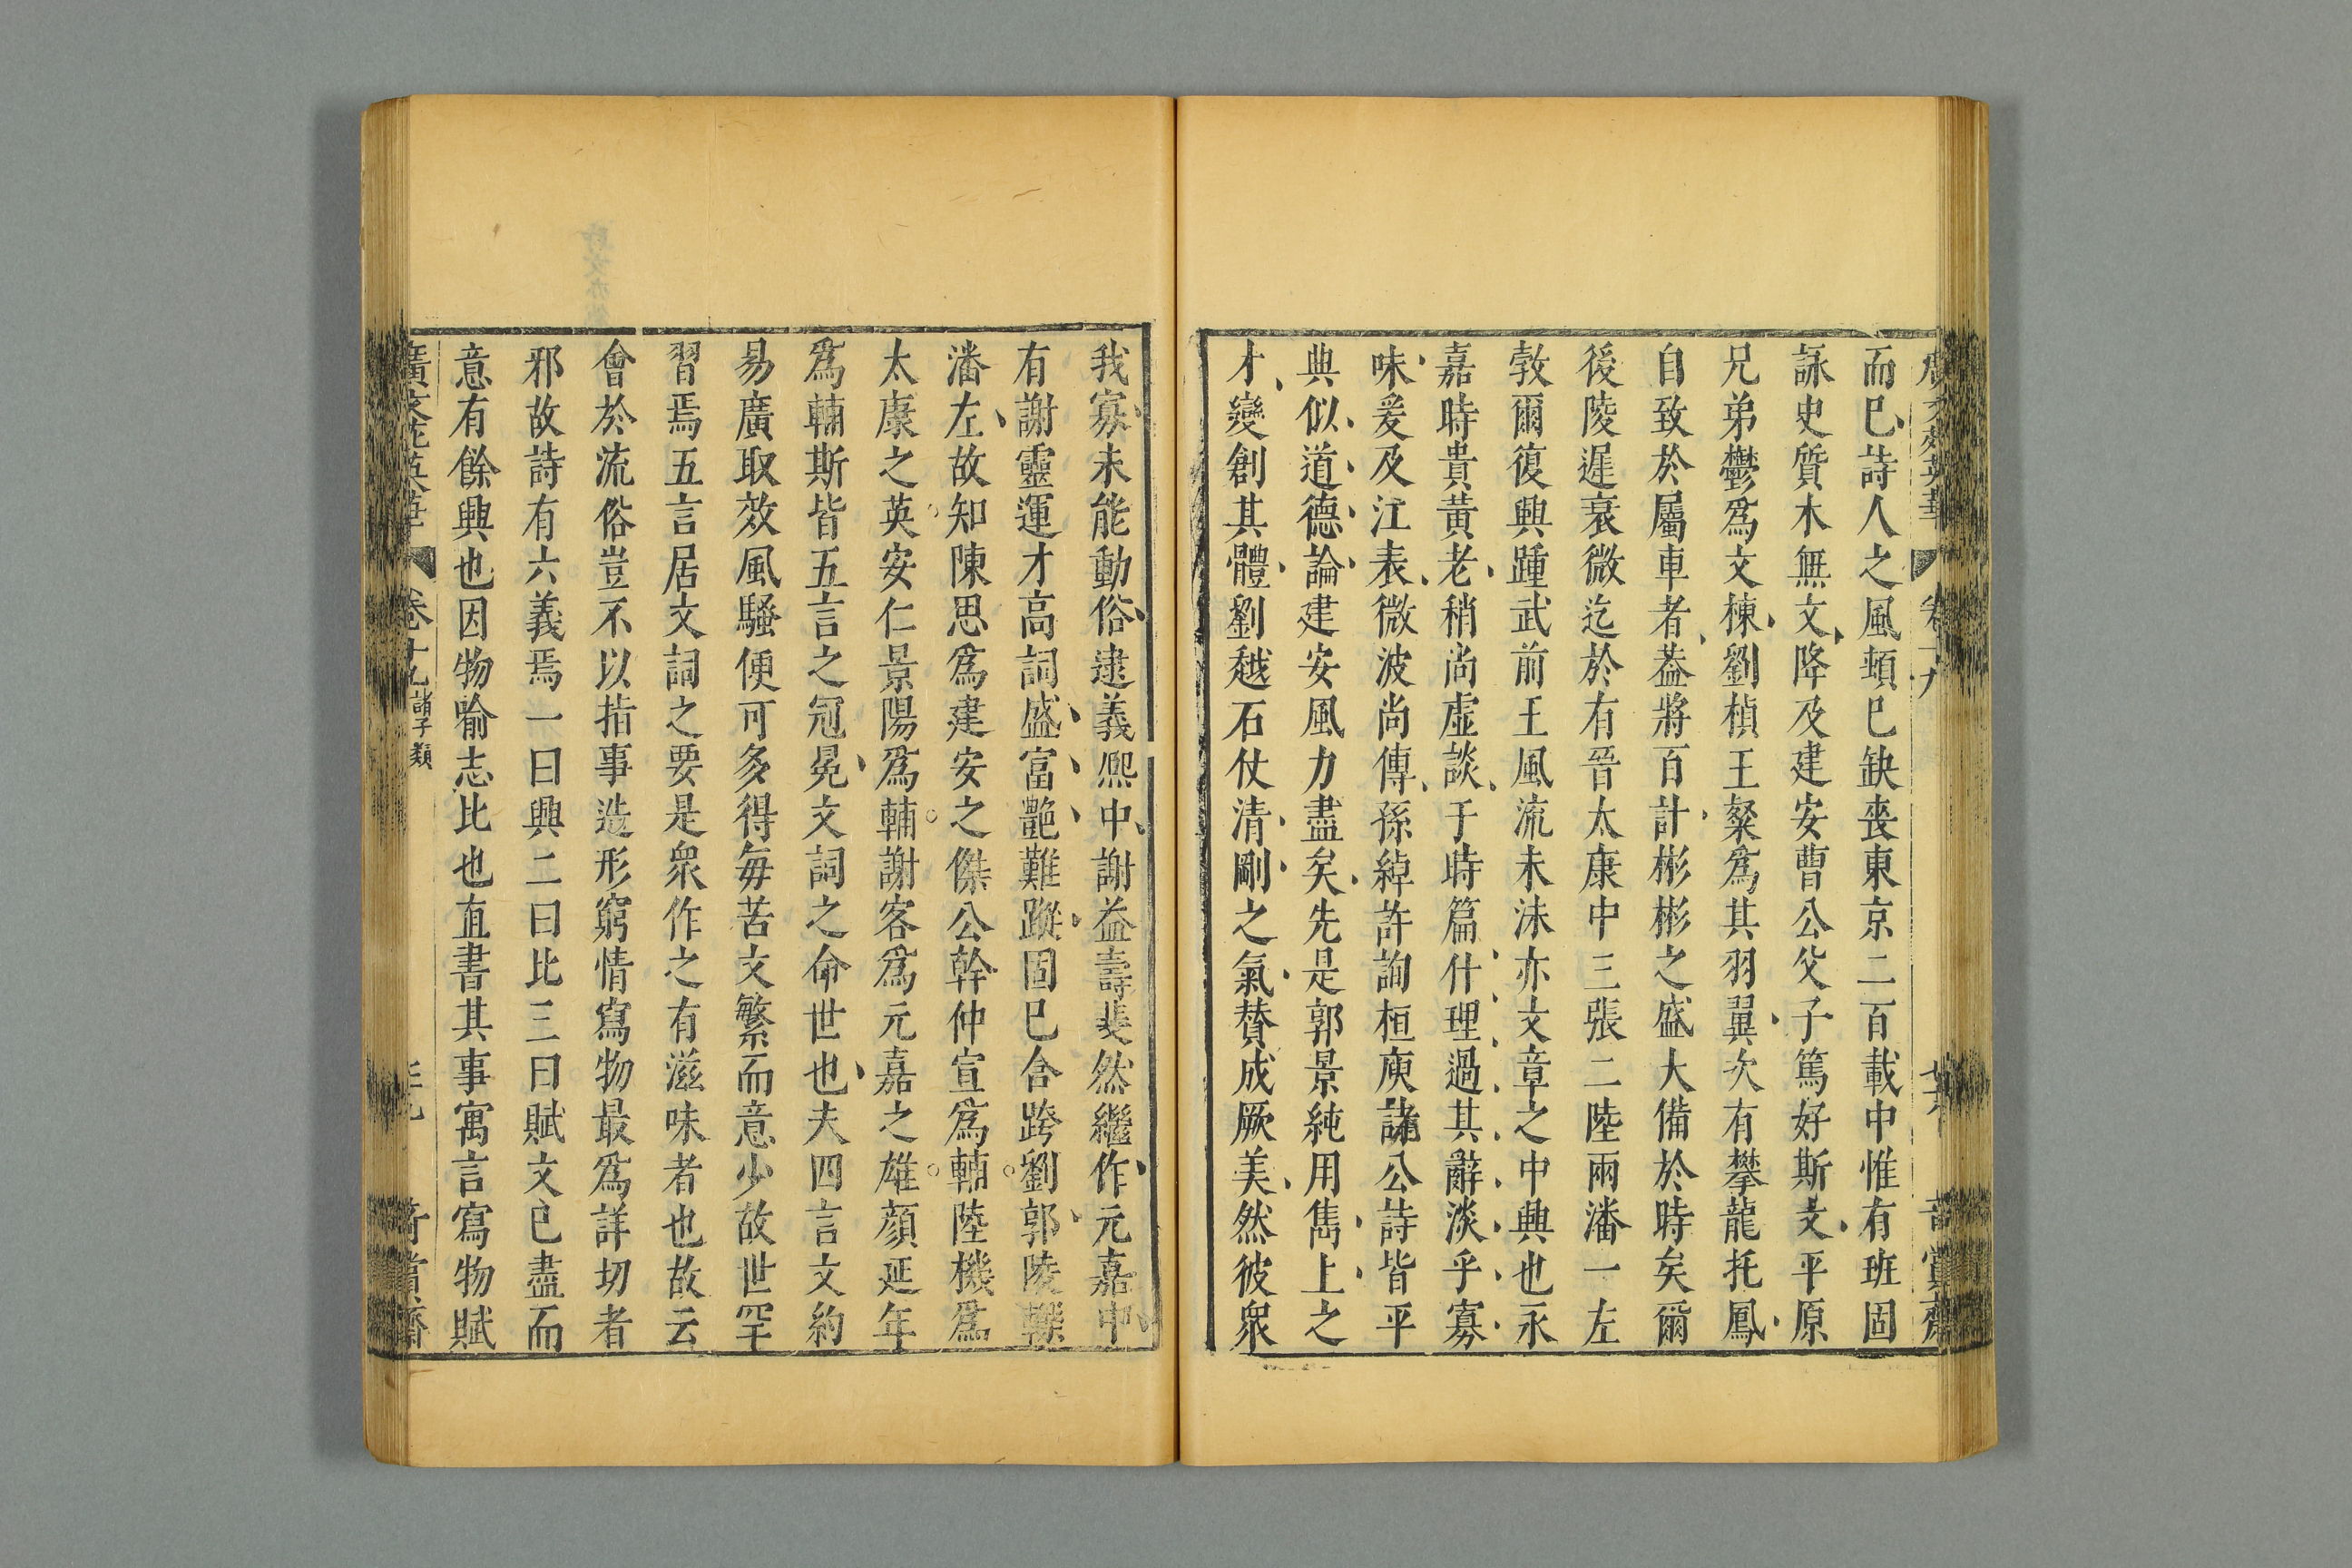 而巳詩人之風頓巳缺喪東京二百載中惟有班固
詠史質木無文降及建安曹公父子篤好斯文平原
兄弟鬱爲文棟劉楨王粲爲其羽翼次有攀龍托鳳
自致於屬車者葢將百計彬彬之盛大備於時矣爾
後陵遲衰微迄於有晉太康中三張二陸兩潘一左
敦爾復興踵武前王風流未沬亦文章之中興也永
嘉時貴黃老稍尚虛談于時篇什理過其辭淡乎寡
味爰及江表微波尚傳孫綽許詢桓庾諸公詩皆平
典似道德論建安風力盡矣先是郭景純用雋上之
才變創其體劉越石仗清剛之氣賛成厥美然彼衆
我寡未能動俗逮義熈中謝益壽斐然繼作元嘉中
有謝靈運才高詞盛富艷難蹤固巳含跨劉郭陵轢
潘左故知陳思爲建安之傑公幹仲宣爲輔陸機爲
太康之英安仁景陽爲輔謝客爲元嘉之雄顏延年
爲輔斯皆五言之冠冕文詞之命世也夫四言文約
易廣取效風騷便可多得每苦文繁而意少故世罕
習焉五言居文詞之要是衆作之有滋味者也故云
會於流俗豈不以指事造形窮情寫物最爲詳切者
邪故詩有六義焉一曰興二曰比三曰賦文巳盡而
意有餘興也因物喻志比也直書其事寓言寫物賦
廣文苑英華 卷十九 諸子類 奇賞齋